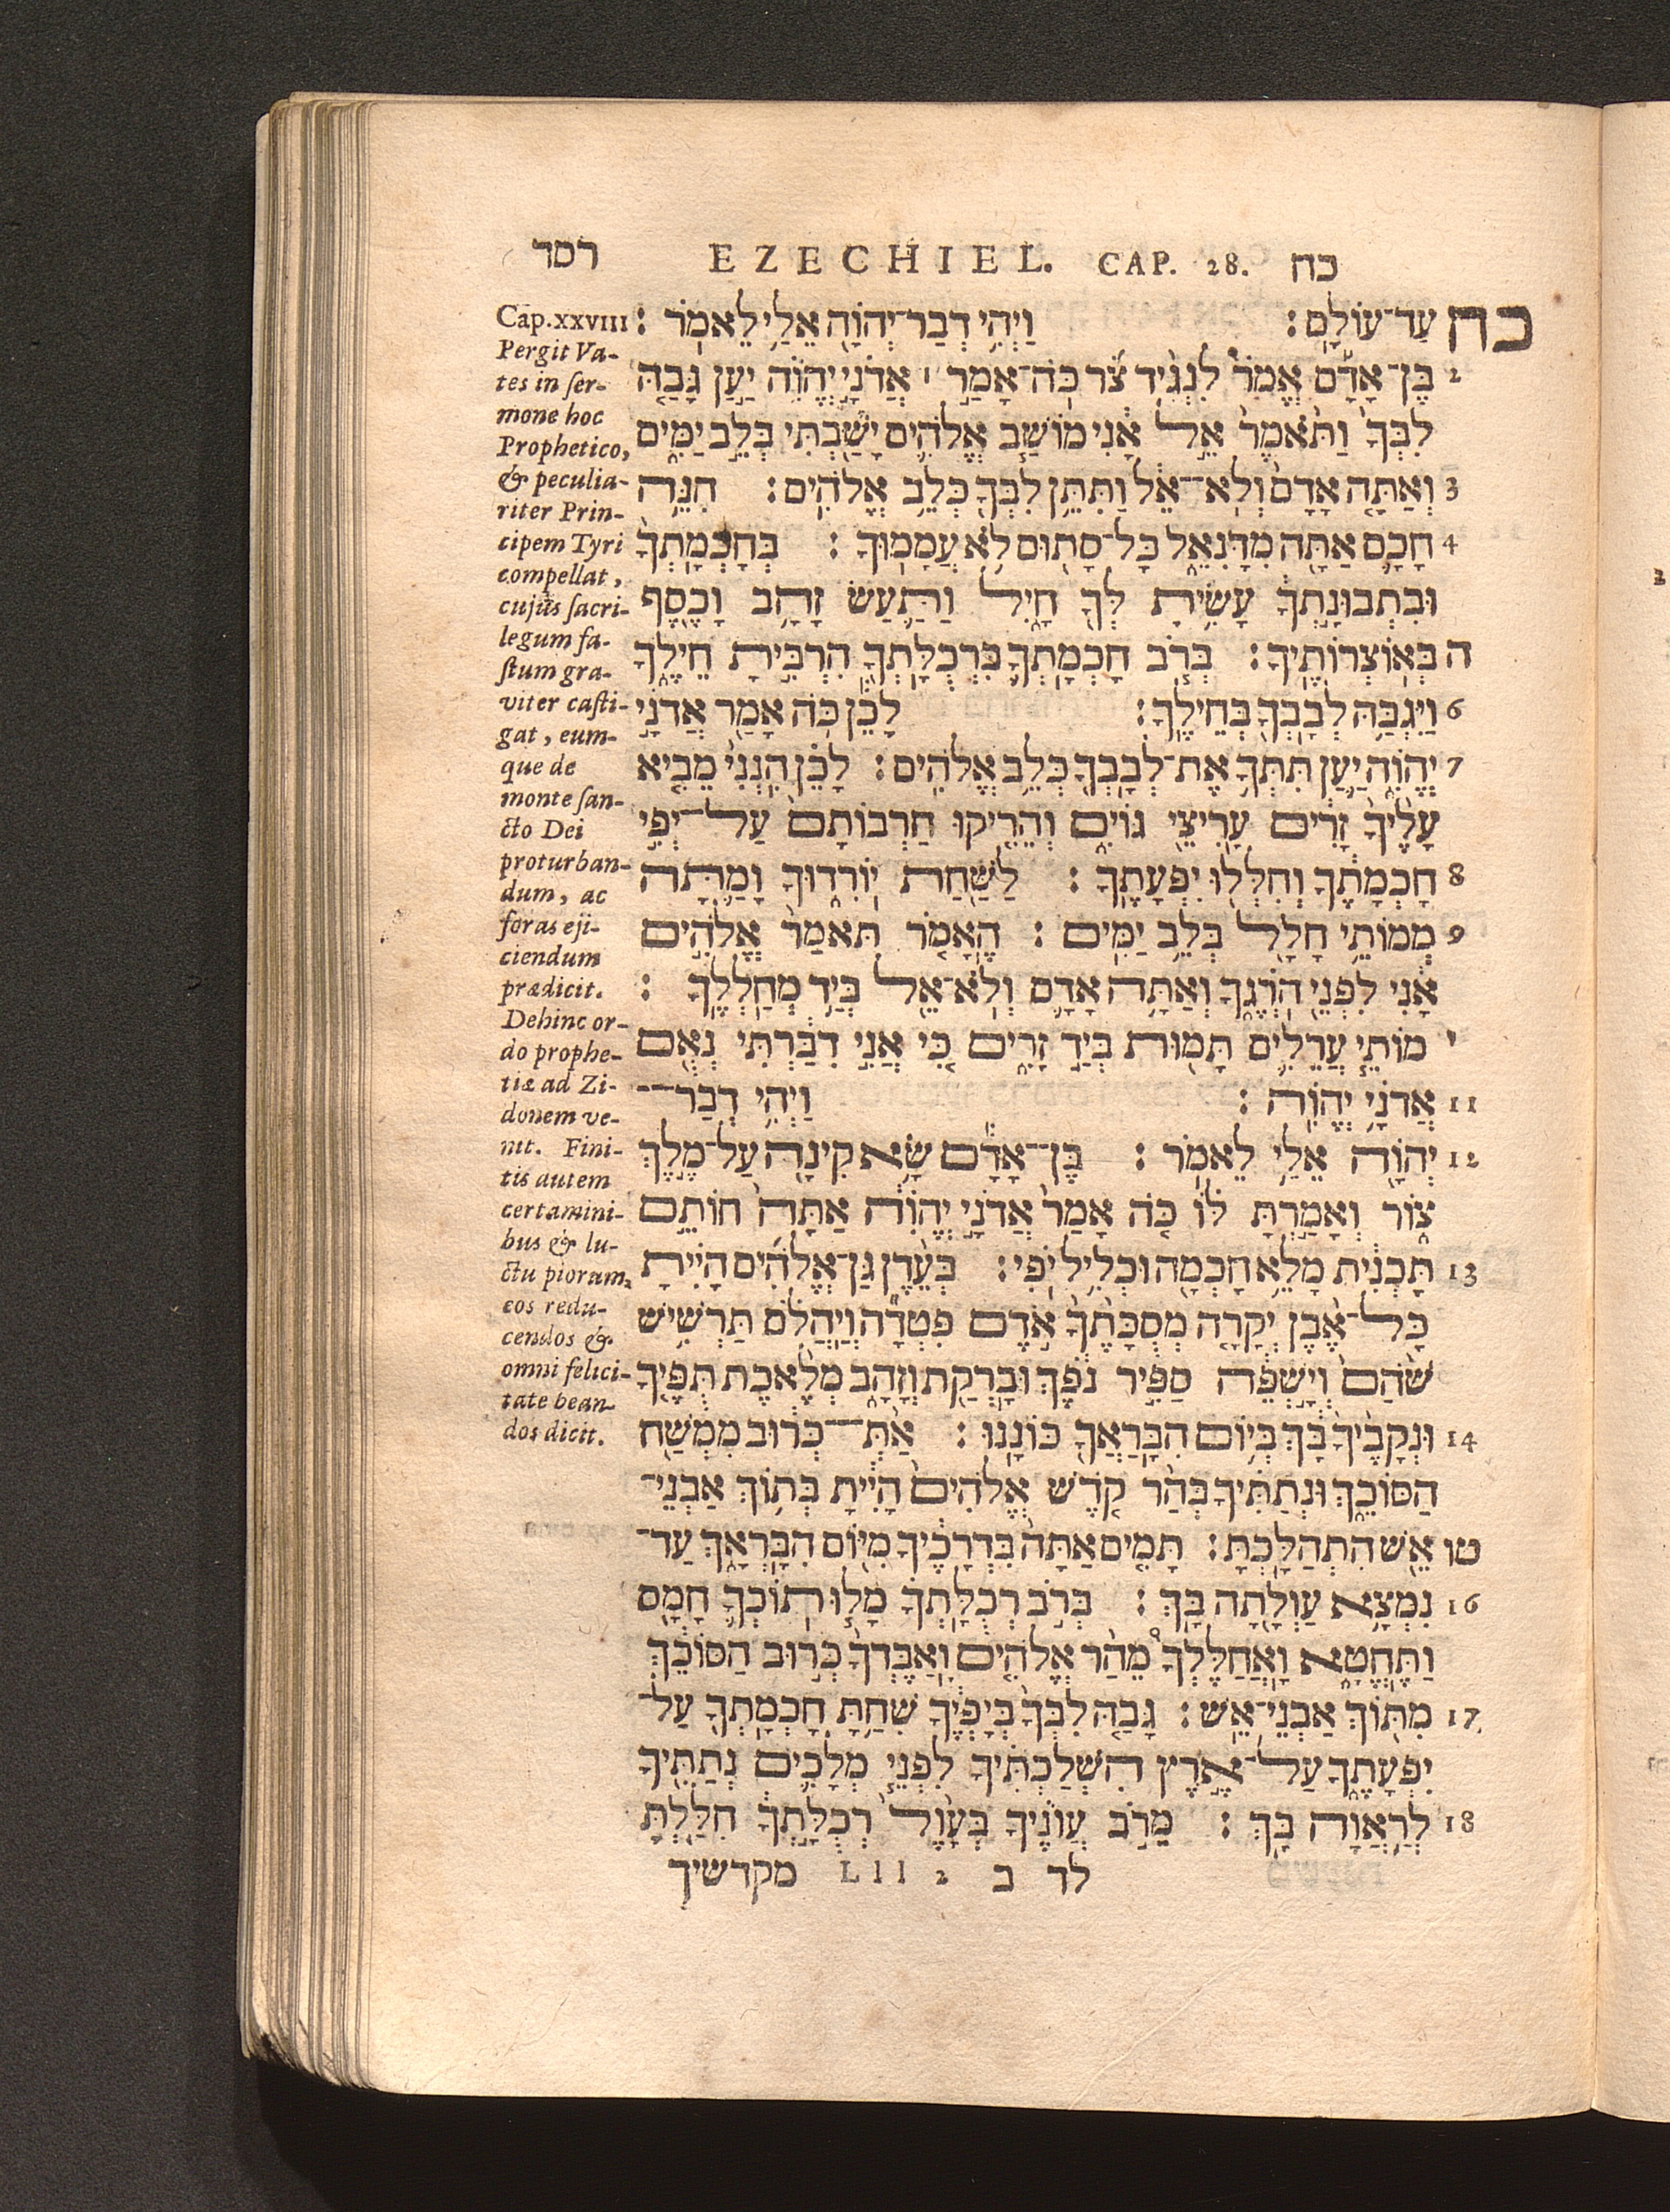 רסד EZECHIEL. CAP. 28. כח
כח עַד־עוֹלָם׃ וַיְהִי דְבַר־יְהוָֹה אֵלַי לֵאמֹר׃
2 בֶּן־אָדָם אֱמֹר לִנְגִיד צֹר כֹּה־אָמַר ׀ אֲדֹנָי יֱהוִֹה יַעַן גָּבַהּ
לִבְּךָ וַתֹּאמֶר אֵל אָנִי מוֹשַׁב אֱלֹהִים יָשַׁבְתִּי בְּלֵב יַמִּים
3 וְאַתָּה אָדָם וְלֹא־אֵל וַתִּתֵּן לִבְּךָ כְּלֵב אֱלֹהִים׃ הִנֵּה
4 חָכָם אַתָּה מִדָּנִאֵל כָּל־סָתוּם לֹא עֲמָמוּךָ׃ בְּחָכְמָתְךָ
וּבִתְבוּנָתְךָ עָשִׂיתָ לְּךָ חָיִל וַתַּעַשׂ זָהָב וָכֶסֶף
ה בְּאוֹצְרוֹתֶיךָ׃ בְּרֹב חָכְמָתְךָ בִּרְכֻלָּתְךָ הִרְבִּיתָ חֵילֶךָ
6 וַיִּגְבַּהּ לְבָבְךָ בְּחֵילֶךָ׃ לָכֵן כֹּה אָמַר אֲדֹנָי
7 יֱהוִֹה יַעַן תִּתְּךָ אֶת־לְבָבְךָ כְּלֵב אֱלֹהִים׃ לָכֵן הִנְנִי מֵבִיא
עָלֶיךָ זָרִים עָרִיצֵי גּוֹיִם וְהֵרִיקוּ חַרְבוֹתָם עַל־יְפִי
8 חָכְמָתֶךָ וְחִלְּלוּ יִפְעָתֶךָ׃ לַשַּׁחַת יוֹרִדוּךָ וָמַתָּה
9 מְמוֹתֵי חָלָל בְּלֵב יַמִּים׃ הֶאָמֹר תֹּאמַר אֱלֹהִים
אָנִי לִפְנֵי הֹרְגֶךָ וְאַתָּה אָדָם וְלֹא־אֵל בְּיַד מְחַלְלֶךָ׃
י מוֹתֵי עֲרֵלִים תָּמוּת בְּיַד זָרִים כִּי אֲנִי דִבַּרְתִּי נְאֻם
11 אֲדֹנָי יֱהוִֹה׃ וַיְהִי דְבַר־
12 יְהוָֹה אֵלַי לֵאמֹר׃ בֶּן־אָדָם שָׂא קִינָה עַל־מֶלֶךְ
צוֹר וְאָמַרְתָּ לּוֹ כֹּה אָמַר אֲדֹנָי יֱהוִֹה אַתָּה חוֹתֵם
13 תָּכְנִית מָלֵא חָכְמָה וּכְלִיל יֹפִי׃ בְּעֵדֶן גַּן־אֱלֹהִים הָיִיתָ
כָּל־אֶבֶן יְקָרָה מְסֻכָתֶךָ אֹדֶם פִּטְדָה וְיַהֲלֹם תַּרְשִׁישׁ
שֹׁהַם וְיָשְׁפֵה סַפִּיר נֹפֶךְ וּבָרְקַת וְזָהָב מְלֶאכֶת תֻּפֶּיךָ
14 וּנְקָבֶיךָ בָּךְ בְּיוֹם הִבָּרַאֲךָ כּוֹנָנוּ׃ אַתְּ־כְּרוּב מִמְשַׁח
הַסּוֹכֵךְ וּנְתַתִּיךָ בְּהַר קֹדֶשׁ אֱלֹהִים הָיִיתָ בְּתוֹךְ אַבְנֵי־
טו אֵשׁ הִתְהַלָּכְתָּ׃ תָּמִים אַתָּה בִּדְרָכֶיךָ מִיּוֹם הִבָּרְאָךְ עַד־
16 נִמְצָא עַוְלָתָה בָּךְ׃ בְּרֹב רְכֻלָּתְךָ מָלוּ תוֹכְךָ חָמָס
וַתֶּחֱטָא וָאֲחַלֶּלְךָ מֵהַר אֱלֹהִים וָאַבֶּדְךָ כְּרוּב הַסּוֹכֵךְ
17 מִתּוֹךְ אַבְנֵי־אֵשׁ׃ גָּבַהּ לִבְּךָ בְּיָפְיֶךָ שִׁחַתָּ חָכְמָתְךָ עַל־
יִפְעָתֶךָ עַל־אֶרֶץ הִשְׁלַכְתִּיךָ לִפְנֵי מְלָכִים נְתַתִּיךָ
18 לְרַאֲוָה בָךְ׃ מֵרֹב עֲוֹנֶיךָ בְּעָוֶל רְכֻלָּתְךָ חִלַּלְתָּ
לד ב Lll 2 מקדשיך
Cap.XXVIII
Pergit Va-
tes in ser-
mone hoc
Prophetico,
& peculia-
riter Prin-
cipem Tyri
compellat,
cujus sacri-
legum fa-
stum gra-
viter casti-
gat, eum-
que de
monte san-
cto Dei
proturban-
dum, ac
foras eji-
ciendum
prædicit.
Dehinc or-
do prophe-
tiæ ad Zi-
donem ve-
nit. Fini-
tis autem
certamini-
bus & lu-
ctu piorum,
eos redu-
cendos &
omni felici-
tate bean-
dos dicit.